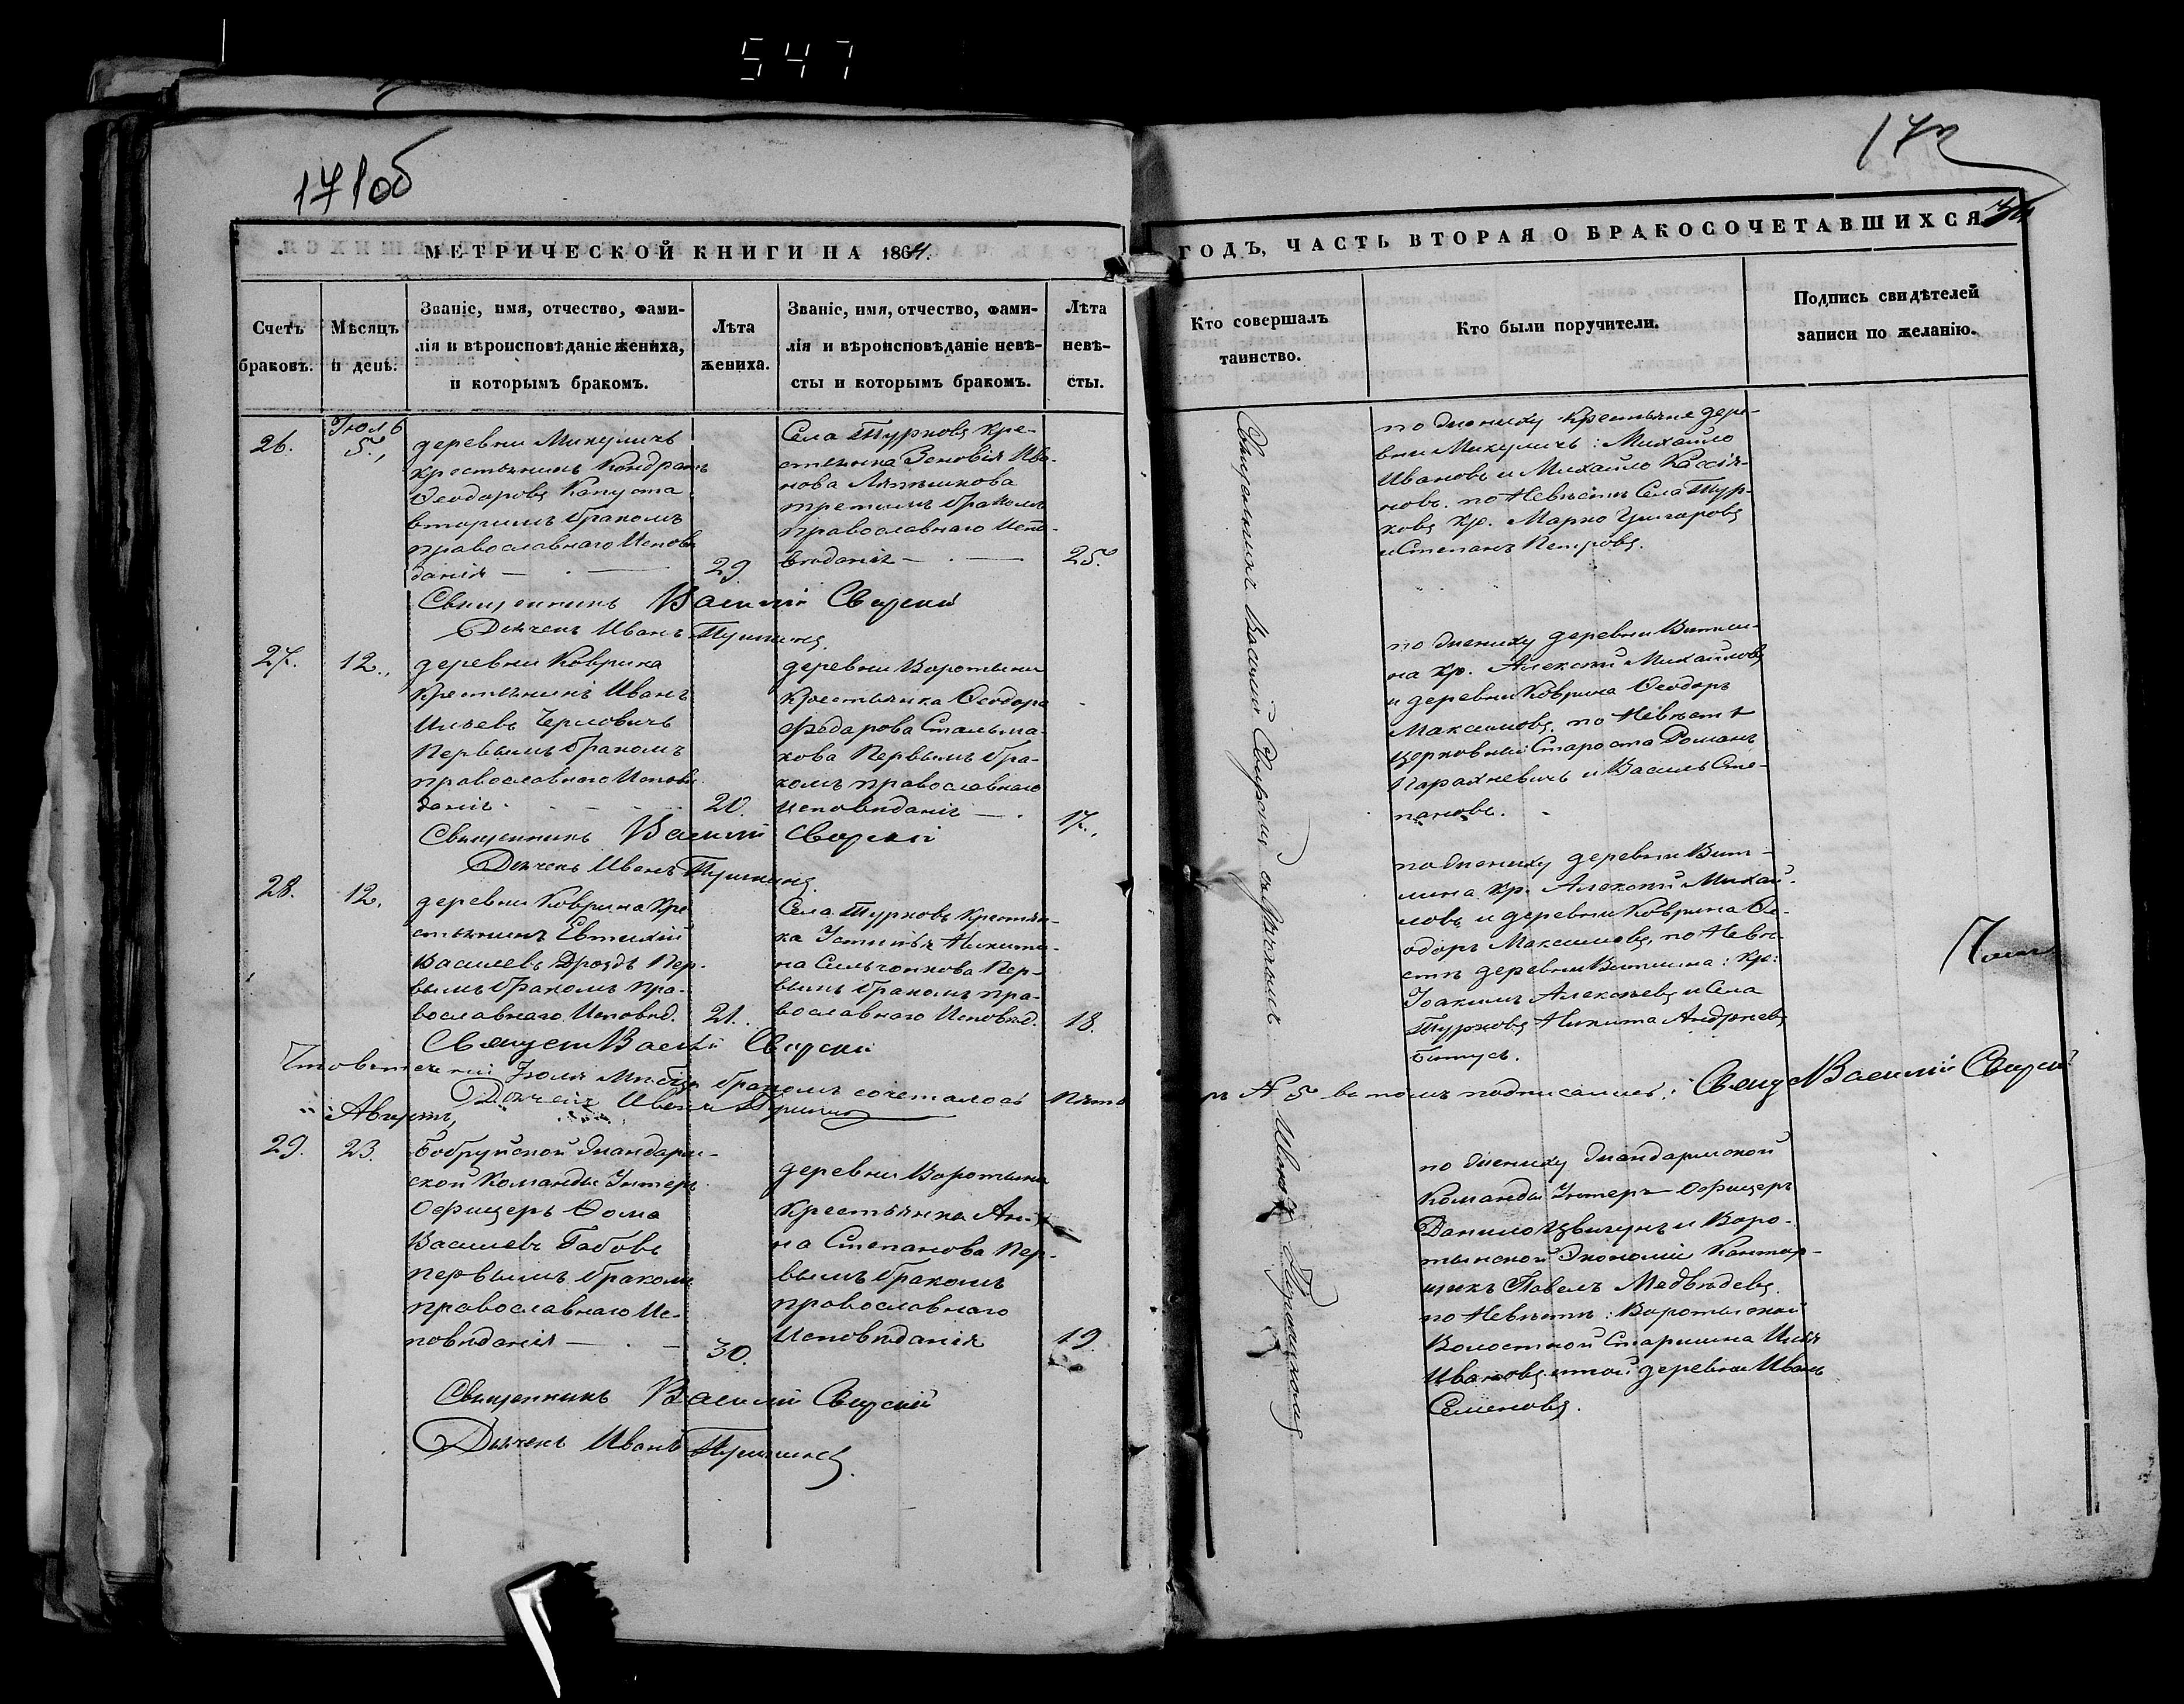 547
171об
172
МЕТРИЧЕСКОЙ КНИГИ НА 1864.
ГОДЪ, ЧАСТЬ ВТОРАЯ О БРАКОСОЧЕТАВШИХСЯ
Счетъ браковъ.
Мѣсяцъ и день.
Званіе, имя, отчество, фами-
лія и вѣроисповѣданіе жениха,
и которымъ бракомъ.
Лѣта жениха.
Званіе, имя, отчество, фами-
лія и вѣроисповѣданіе невѣ-
сты и которымъ бракомъ.
Лѣта невѣ-
сты.
Кто совершалъ
таинство.
Кто были поручители.
Подпись свидѣтелей
записи по желанію.
Іюль
26.
5.
деревни Микуличъ
крестьянинъ Кондратъ
Ѳеодоровъ Капуста
вторымъ бракомъ
православнаго Исповѣ
данія
29.
Села Турковъ кре-
стьянка Зеновія Ива-
нова Ляпешкова
третьимъ бракомъ
православнаго Испо-
вѣданія
25.
по жениху крестьяне дере-
вни Микуличъ: Михайло
Ивановъ и Михайло Кассія-
новъ. по Невѣстѣ Села Тур-
ковъ кр. Марко Григоровъ
и Степанъ Петровъ.
Священникъ Василій Свирскій
Дьячекъ Иванъ
27.
12.
деревни Коврина
Крестьянинъ Иванъ
Ильевъ
Первымъ бракомъ
православнаго Исповѣ
данія
20.
деревни Воротынь
Крестьянка Ѳеодора
Федарова Стальма-
хова Первымъ бра-
комъ православнаго
Исповѣданія
17.
по жениху деревни Витли-
на кр. Алексѣй Михайловъ
и деревни Коврина Ѳеодоръ
Максимовъ. по Невѣстѣ
церковный Староста Романъ
Парахневичъ и Василь Сте-
пановъ.
Священникъ Василій Свирскій
Дьячекъ Иванъ
28.
12.
деревни Коврина Кре
стьянинъ Евтихій
Васильевъ Дроздъ Пер-
вымъ бракомъ пра-
вославнаго Исповѣд.
21.
Села Турковъ Крестьян-
ка Устинья Никити-
на Сильчонкова Пер-
вымъ бракомъ пра-
вославнаго Исповѣд.
18.
по жениху деревни Вит-
лина кр. Алексѣй Михай-
ловъ и деревни Коврина Ѳе-
одоръ Максимовъ, по Невѣ-
стѣ деревни Витлина: кр:
Іоакимъ Алексѣевъ и Села
Турковъ Никита Андреевъ
Битусъ.
Священ Василій Свирскій
Что въ теченіи Іюля Мѣсяца бракомъ сочеталось Пять
№ 5 въ томъ подписались: Свящ Василій Свирскій
Дьячекъ Иванъ
Августъ,
29.
23.
Бобруйской Жандарм-
ской Команды Унтеръ
Офицеръ Ѳома
Васильевъ Бабовъ
первымъ бракомъ
православнаго Ис-
повѣданія
30.
деревни Воротынь
Крестьянка Ан-
на Степанова Пер-
вымъ бракомъ
православнаго
Исповѣданія
19.
по жениху Жандармской
Команды Унтеръ-Офицеръ
Данило Цвигунъ и Воро-
тынской Экономіи Контор-
щикъ Павелъ Медвѣдевъ.
по Невѣстѣ: Воротынской
Волостной Старшина Илья
Ивановъ и той деревни Иванъ
Семеновъ.
Священникъ Василій Свирскій
Дьячекъ Иванъ
Священникъ Василій Свирскій съ Дьячкомъ Иваномъ